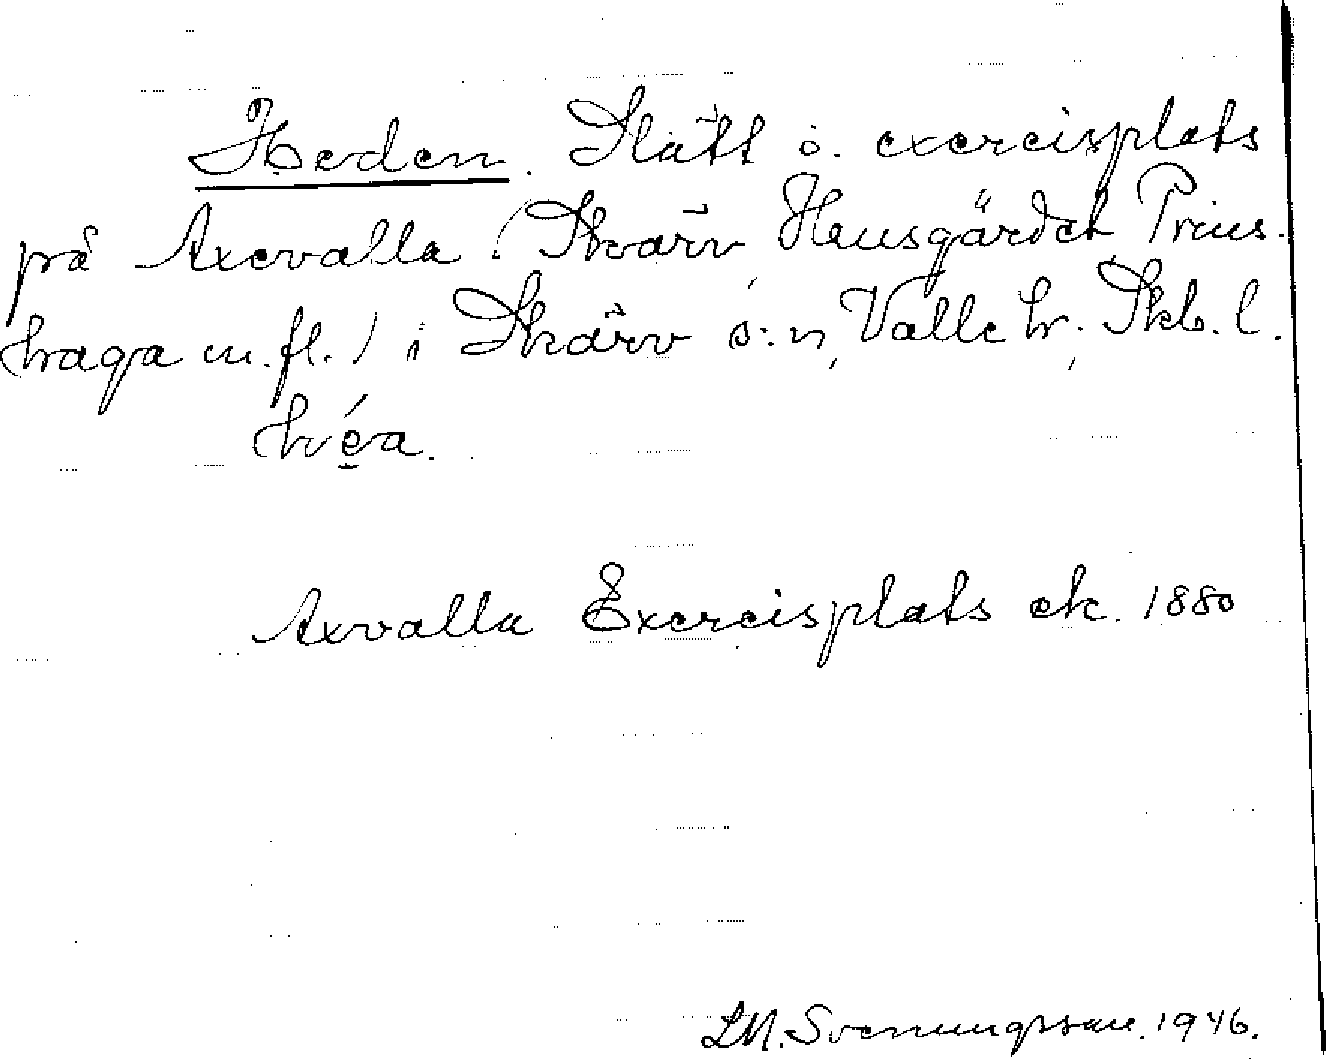 Heden. Slätt o. exercisplats
på Axevalla (Skärv, Hensgärdet Prins-
haga m. fl.) i Skärv s:n, Valle hr, Skb. l.
héa.
Axvalla Exercisplats ek. 1880
L.M. Svenungsson. 1946.